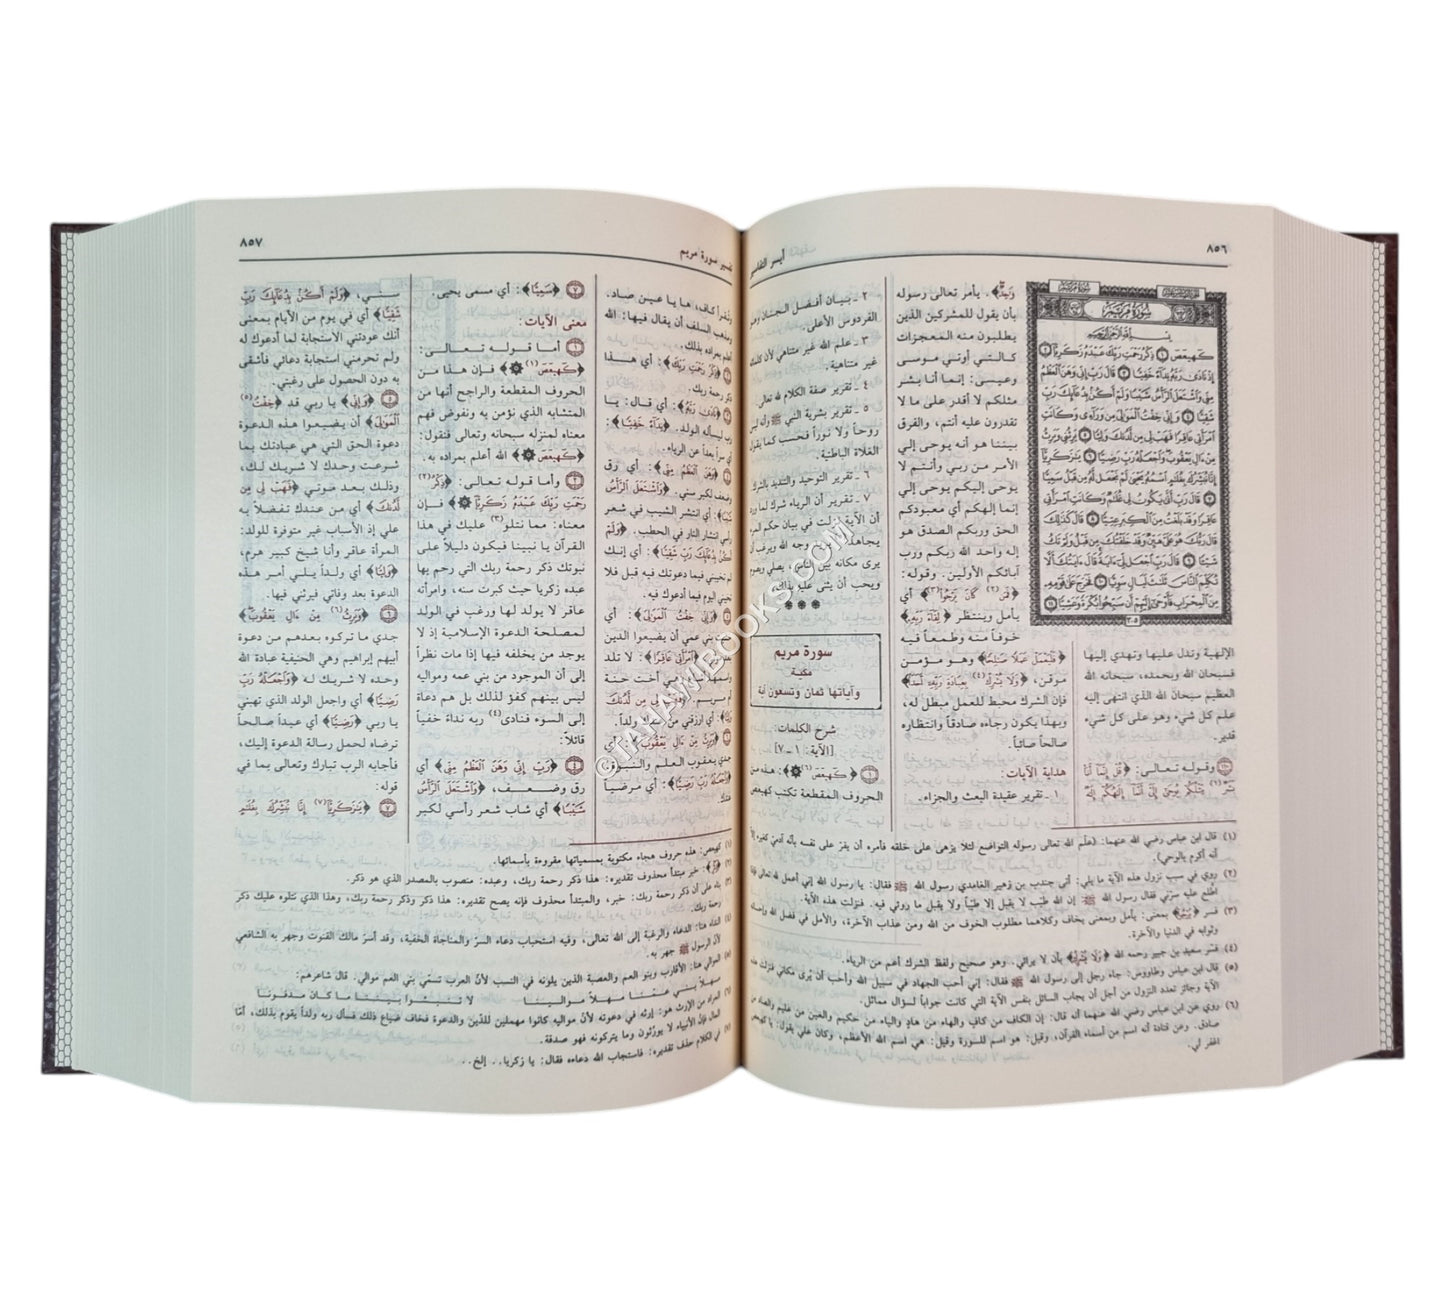 ٨٥٦
أيسر التفاسير
سُورَةُ مَرْيَمَ
٣٠٥
الإلهية وتدل عليها وتهدي إليها
فسبحان الله وبحمده، سبحانه الله
العظيم سبحان الله الذي انتهى إليه
علم كل شيء وهو على كل شيء
قدير.
وقوله تعالى: ﴿قُلْ إِنَّمَا أَنَا
بَشَرٌ (١) مِثْلُكُمْ يُوحَى إِلَيَّ أَنَّمَا إِلَهُكُمْ إِلَهٌ
وَاحِدٌ﴾. يأمر تعالى رسوله
بأن يقول للمشركين الذين
يطلبون منه المعجزات
كالتي أوتي موسى
وعيسى: إنما أنا بشر
مثلكم لا أقدر على ما لا
تقدرون عليه أنتم، والفرق
بيننا هو أنه يوحى إلي
الأمر من ربي وأنتم لا
يوحى إليكم يوحى إلي
إنما إلهكم أي معبودكم
الحق وربكم الصدق هو
إله واحد الله ربكم ورب
آبائكم الأولين. وقوله:
﴿فَمَن (٢) كَانَ يَرْجُوا (٣)﴾ أي
يأمل وينتظر ﴿لِقَاءَ رَبِّهِ﴾
خوفاً منه وطمعاً فيه
﴿فَلْيَعْمَلْ عَمَلاً صَالِحاً﴾ وهو مؤمن
موقن، ﴿وَلَا يُشْرِكْ (٤) بِعِبَادَةِ رَبِّهِ أَحَداً﴾
فإن الشرك محبط للعمل مبطل له،
وبهذا يكون رجاءه صادقاً وانتظاره
صالحاً صائباً.
هداية الآيات:
١ ـ تقرير عقيدة البعث والجزاء.
٢ ـ بيان أفضل الجنان وهو
الفردوس الأعلى.
٣ ـ علم الله غير متناهي لأن كلماته
غير متناهية.
٤ ـ تقرير صفة الكلام لله تعالى.
٥ ـ تقرير بشرية النبي ﷺ وأنه ليس
روحاً ولا نوراً فحسب كما يقول
الغلاة الباطنية.
٦ ـ تقرير التوحيد والتنديد بالشرك.
٧ ـ تقرير أن الرياء شرك لما ورد
أن الآية نزلت في بيان حكم المرء
يجاهد وجه الله ويرغب أن
يرى مكانه بين الناس، يصلي ويصوم
ويحب أن يثنى عليه بذلك.
***
سورة مريم
مكية
وآياتها ثمان وتسعون آية
شرح الكلمات:
[الآية: ١ ـ ٧]
﴿كهيعص (٦)﴾: هذه من
الحروف المقطعة تكتب كهيعص
(١) قال ابن عباس رضي الله عنهما: علّم الله تعالى رسوله التواضع لئلا يزهى على خلقه فأمره أن يقرّ على نفسه بأنه آدمي كغيره إلا
أنه أكرم بالوحي.
(٢) روي في سبب نزول هذه الآية ما يلي: أتى جندب بن زهير الغامدي رسول الله ﷺ فقال: يا رسول الله إني أعمل لله تعالى فإذا
اطلع عليه سرّني فقال رسول الله ﷺ إن الله طيّب لا يقبل إلا طيّباً ولا يقبل ما روئي فيه. فنزلت هذه الآية.
(٣) فسر ﴿يَرْجُوا﴾ بمعنى: يأمل وبمعنى يخاف وكلاهما مطلوب الخوف من الله ومن عذاب الآخرة، والأمل في فضل الله وإحسانه
وثوابه في الدنيا والآخرة.
(٤) فسّر سعيد بن جبير رحمه الله ﴿وَلَا يُشْرِكْ﴾ بأن لا يرائي.. وهو صحيح ولفظ الشرك أعم من الرياء.
(٥) قال ابن عباس وطاووس: جاء رجل إلى رسول الله ﷺ فقال: إني أحب الجهاد في سبيل الله وأحب أن يُرى مكاني فنزلت هذه
الآية وجائز تعدد النزول من أجل أن يجاب السائل بنفس الآية التي كانت جواباً لسؤال مماثل.
(٦) روي عن ابن عباس رضي الله عنهما أنه قال: إن الكاف من كافٍ والهاء من هادٍ والياء من حكيم والعين من عليم والصاد من
صادق. وعن قتادة أنه اسم من أسماء القرآن، وقيل: هو اسم للسورة وقيل: هي اسم الله الأعظم، وكان علي يقول: يا كهيعص
اغفر لي.
٨٥٧
تفسير سورة مريم
وتُقرأ كاف، ها يا عين صاد.
ومذهب السلف أن يقال فيها: الله
أعلم بمراده بذلك.
﴿ذِكْرُ رَحْمَتِ رَبِّكَ﴾: أي هذا
ذكر رحمة ربك.
﴿نَادَى رَبَّهُ﴾: أي قال: يا
رب ليسأله الولد. ﴿نِدَاءً خَفِيًّا﴾:
أي سراً بعداً عن الرياء.
﴿وَهَنَ الْعَظْمُ مِنِّي﴾: أي رق
وضعف لكبر سني. ﴿وَاشْتَعَلَ الرَّأْسُ
شَيْباً﴾: أي انتشر الشيب في شعر
رأسي انتشار النار في الحطب. ﴿وَلَمْ
أَكُنْ بِدُعَائِكَ رَبِّ شَقِيًّا﴾: أي إنك
لم تخيبني فيما دعوتك فيه قبل فلا
تخيبني اليوم فيما أدعوك فيه.
﴿وَإِنِّي خِفْتُ الْمَوَالِيَ﴾: أي
بني عمي أن يضيعوا الدين
﴿امْرَأَتِي عَاقِراً﴾: لا تلد
أخت حنة
أم مريم. ﴿فَهَبْ لِي مِنْ لَدُنْكَ
وَلِيًّا﴾: أي ارزقني من عندك ولداً.
﴿وَيَرِثُ مِنْ آلِ يَعْقُوبَ﴾: أي
جدي يعقوب العلم والنبوة
﴿وَاجْعَلْهُ رَبِّ رَضِيًّا﴾: أي مرضياً
عندك.
﴿سَمِيًّا﴾: أي مسمى يحيى.
معنى الآيات:
أما قوله تعالى:
﴿كهيعص (١)﴾ فإن هذا من
الحروف المقطعة والراجح أنها من
المتشابه الذي نؤمن به ونفوض فهم
معناه لمنزله سبحانه وتعالى فنقول:
﴿كهيعص﴾ الله أعلم بمراده به.
وأما قوله تعالى: ﴿ذِكْرُ (٢)
رَحْمَتِ رَبِّكَ عَبْدَهُ زَكَرِيَّا﴾ فإن
معناه: مما نتلو (٣) عليك في هذا
القرآن يا نبينا فيكون دليلاً على
نبوتك ذكر رحمة ربك التي رحم بها
عبده زكريا حيث كبرت سنه، وامرأته
عاقر لا يولد لها ورغب في الولد
لمصلحة الدعوة الإسلامية إذ لا
يوجد من يخلفه فيها إذا مات نظراً
إلى أن الموجود من بني عمه ومواليه
ليس بينهم كفؤ لذلك بل هم دعاة
إلى السوء فنادى (٤) ربه نداءً خفياً
قائلاً:
﴿رَبِّ إِنِّي وَهَنَ الْعَظْمُ مِنِّي﴾ أي
رق وضعف، ﴿وَاشْتَعَلَ الرَّأْسُ
شَيْباً﴾ أي شاب شعر رأسي لكبر
سني، ﴿وَلَمْ أَكُنْ بِدُعَائِكَ رَبِّ
شَقِيًّا﴾ أي في يوم من الأيام بمعنى
أنك عودتني الاستجابة لما أدعوك له
ولم تحرمني استجابة دعائي فأشقى
به دون الحصول على رغبتي.
﴿وَإِنِّي﴾ يا ربي قد ﴿خِفْتُ (٥)
الْمَوَالِيَ﴾ أن يضيعوا هذه الدعوة
دعوة الحق التي هي عبادتك بما
شرعت وحدك لا شريك لك،
وذلك بعد موتي ﴿فَهَبْ لِي مِنْ
لَدُنْكَ﴾ أي من عندك تفضلاً به
علي إذ الأسباب غير متوفرة للولد:
المرأة عاقر وأنا شيخ كبير هرم،
﴿وَلِيًّا﴾ أي ولداً يلي أمر هذه
الدعوة بعد وفاتي فيرثني فيها.
﴿وَيَرِثُ (٦) مِنْ آلِ يَعْقُوبَ﴾
جدي ما تركوه بعدهم من دعوة
أبيهم إبراهيم وهي الحنيفية عبادة الله
وحده لا شريك له ﴿وَاجْعَلْهُ رَبِّ
رَضِيًّا﴾ أي واجعل الولد الذي تهبني
يا ربي ﴿رَضِيًّا﴾ أي عبداً صالحاً
ترضاه لحمل رسالة الدعوة إليك،
فأجابه الرب تبارك وتعالى بما في
قوله:
﴿يَا زَكَرِيَّا (٧) إِنَّا نُبَشِّرُكَ بِغُلَامٍ
(١) كهيعص: هذه حروف هجاء مكتوبة بمسمياتها مقروءة بأسمائها.
(٢) ﴿ذِكْرُ﴾: خبر مبتدأ محذوف تقديره: هذا ذكر رحمة ربك، وعبده: منصوب بالمصدر الذي هو ذكر.
(٣) بناء على أن ذكر رحمة ربك: خبر، والمبتدأ محذوف فإنه يصح تقديره: هذا ذكر وذكر ربك، وهذا الذي نتلوه عليك ذكر
رحمة ربك.
(٤) النداء هنا: الدعاء والرغبة إلى الله تعالى، وفيه استحباب دعاء السرّ والمناجاة الخفية، وقد أسرّ مالك القنوت وجهر به الشافعي
لأن الرسول ﷺ جهر به.
(٥) الموالي هنا: الأقارب وبنو العم والعصبة الذين يلونه في النسب لأنّ العرب تسمّي بني العم موالي. قال شاعرهم:
مهلاً بني عمّنا مهلاً موالينا لا تنبشوا بيننا ما كان مدفونا
(٦) المراد من الإرث هو: إرثه في دعوته لأنّ مواليه كانوا مهملين للدّين والدعوة فخاف ضياع ذلك فسأل ربه ولداً يقوم بذلك، أمّا
المال فإنّ الأنبياء لا يورّثون وما يتركونه فهو صدقة.
(٧) في الكلام حذف تقديره: فاستجاب الله دعاءه فقال: يا زكريا.. إلخ..
©TAHAWIBOOKS.COM